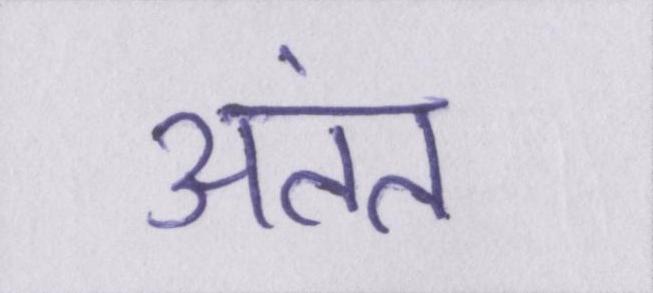 अंतत